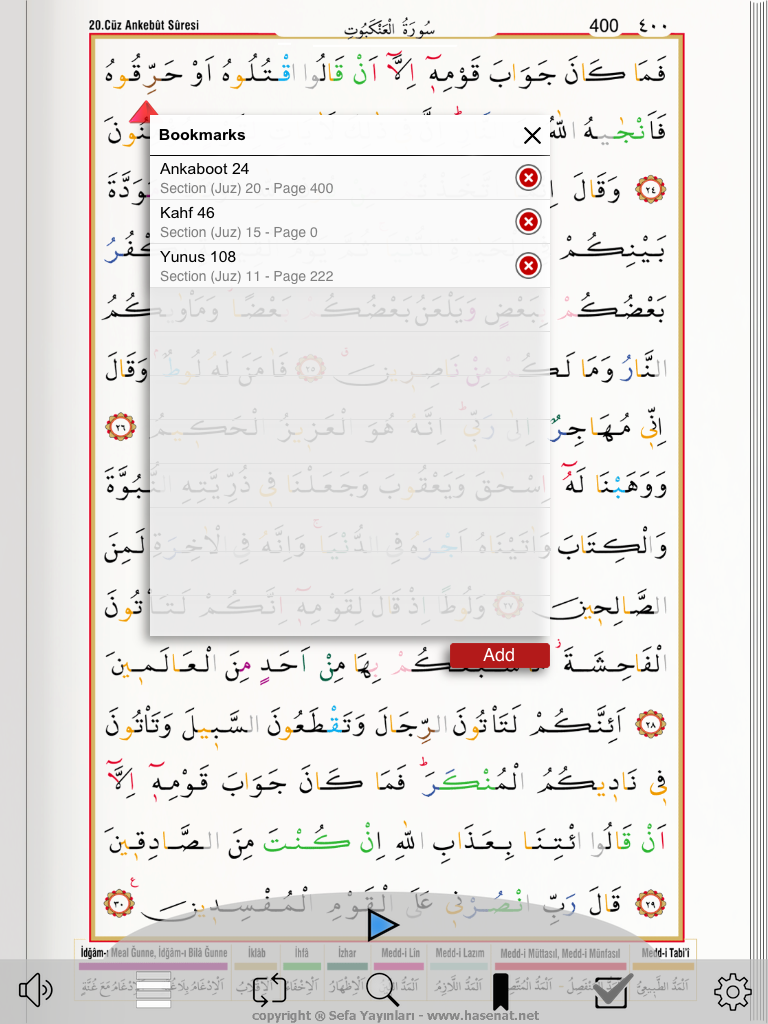 20.Cüz Ankebût Sûresi
سُورَةُ الْعَنْكَبُوتِ
400 ٤٠٠
فَمَا كَانَ جَوَابَ قَوْمِهٖٓ اِلَّٓا اَنْ قَالُوا اقْتُلُوهُ اَوْ حَرِّقُوهُ
فَاَنْجٰيهُ اللّٰهُ
Bookmarks
٢٤ وَقَالَ
Ankaboot 24
Section (Juz) 20 - Page 400
Kahf 46
Section (Juz) 15 - Page 0
Yunus 108
Section (Juz) 11 - Page 222
بَيْنِكُمْ
بَعْضُكُمْ بِبَعْضٍ وَيَلْعَنُ بَعْضُكُمْ بَعْضًا وَمَأْوٰيكُمُ
النَّارُ وَمَا لَكُمْ مِنْ نَاصِرٖينَ ٢٥ فَاٰمَنَ لَهُ لُوطٌ وَقَالَ
اِنّٖي مُهَاجِرٌ اِلٰى رَبّٖي اِنَّهُ هُوَ الْعَزٖيزُ الْحَكٖيمُ ٢٦
وَوَهَبْنَا لَهُٓ اِسْحٰقَ وَيَعْقُوبَ وَجَعَلْنَا فٖي ذُرِّيَّتِهِ النُّبُوَّةَ
وَالْكِتَابَ وَاٰتَيْنَاهُ اَجْرَهُ فِي الدُّنْيَا وَاِنَّهُ فِي الْاٰخِرَةِ لَمِنَ
الصَّالِحٖينَ ٢٧ وَلُوطًا اِذْ قَالَ لِقَوْمِهٖٓ اِنَّكُمْ لَتَأْتُونَ
Add
الْفَاحِشَةَ مَا سَبَقَكُمْ بِهَا مِنْ اَحَدٍ مِنَ الْعَالَمٖينَ
٢٨ اَئِنَّكُمْ لَتَأْتُونَ الرِّجَالَ وَتَقْطَعُونَ السَّبٖيلَ وَتَأْتُونَ
فٖي نَادٖيكُمُ الْمُنْكَرَ فَمَا كَانَ جَوَابَ قَوْمِهٖٓ اِلَّٓا
اَنْ قَالُوا ائْتِنَا بِعَذَابِ اللّٰهِ اِنْ كُنْتَ مِنَ الصَّادِقٖينَ
٢٩ قَالَ رَبِّ انْصُرْنٖي عَلَى الْقَوْمِ الْمُفْسِدٖينَ ٣٠
İdğâm-ı Meal Ğunne, İdğâm-ı Bilâ Ğunne İklâb İhfâ İzhar Medd-i Lin Medd-i Lazım Medd-i Müttasıl, Medd-i Münfasıl Medd-i Tabi'î
copyright ® Sefa Yayınları - www.hasenat.net